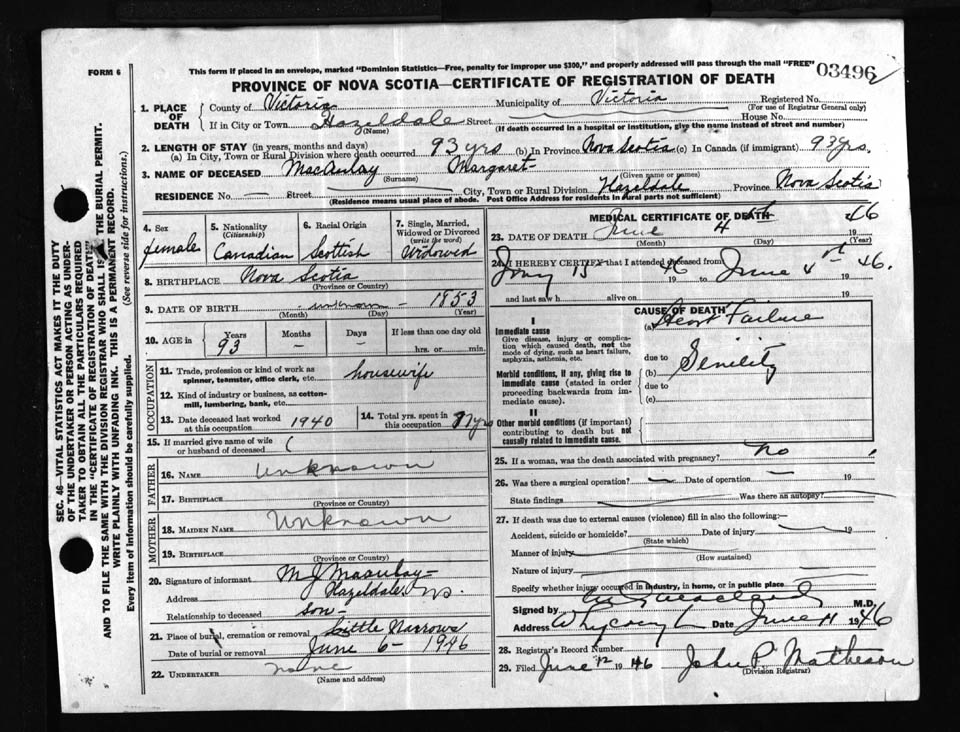 FORM 6
This form if placed in an envelope, marked "Dominion Statistics—Free, penalty for improper use $300," and properly addressed will pass through the mail "FREE"
03496
PROVINCE OF NOVA SCOTIA—CERTIFICATE OF REGISTRATION OF DEATH
1. PLACE OF DEATH
County of Victoria Municipality of Victoria Registered No.
(For use of Registrar General only)
If in City or Town Hazeldale Street House No.
(Name) (If death occurred in a hospital or institution, give the name instead of street and number)
2. LENGTH OF STAY (in years, months and days)
(a) In City, Town or Rural Division where death occurred 93 yrs (b) In Province Nova Scotia (c) In Canada (if immigrant) 93 yrs.
3. NAME OF DECEASED MacAulay Margaret
(Surname) (Given name or names)
RESIDENCE No. — Street City, Town or Rural Division Hazeldale Province Nova Scotia
(Residence means usual place of abode. Post Office Address for residents in rural parts not sufficient)
4. Sex
female
5. Nationality
(Citizenship)
Canadian
6. Racial Origin
Scottish
7. Single, Married, Widowed or Divorced
(write the word)
Widowed
8. BIRTHPLACE Nova Scotia
(Province or Country)
9. DATE OF BIRTH unknown — 1853
(Month) (Day) (Year)
10. AGE in
Years Months Days If less than one day old
93 — — hrs. or min.
OCCUPATION
11. Trade, profession or kind of work as spinner, teamster, office clerk, etc. housewife
12. Kind of industry or business, as cotton-mill, lumbering, bank, etc.
13. Date deceased last worked at this occupation 1940
14. Total yrs. spent in this occupation yrs
15. If married give name of wife or husband of deceased
FATHER
16. NAME Unknown
17. BIRTHPLACE
(Province or Country)
MOTHER
18. MAIDEN NAME Unknown
19. BIRTHPLACE
(Province or Country)
20. Signature of informant M J Macaulay
Address Hazeldale, NS.
Relationship to deceased son
21. Place of burial, cremation or removal Little Narrows
Date of burial or removal June 6 - 1946
22. UNDERTAKER none
(Name and address)
MEDICAL CERTIFICATE OF DEATH
23. DATE OF DEATH June 4
(Month) (Day) (Year)
24. I HEREBY CERTIFY that I attended deceased from
15 1946 to June 4 1946.
and last saw h alive on 19
CAUSE OF DEATH
I
Immediate cause
Give disease, injury or complication which caused death, not the mode of dying, such as heart failure, asphyxia, asthenia, etc.
(a) Heart Failure
due to
Morbid conditions, if any, giving rise to immediate cause (stated in order proceeding backwards from immediate cause).
(b) Senility
due to
(c)
II
Other morbid conditions (if important) contributing to death but not causally related to immediate cause.
25. If a woman, was the death associated with pregnancy? No
26. Was there a surgical operation — Date of operation 19
State findings Was there an autopsy?
27. If death was due to external causes (violence) fill in also the following:—
Accident, suicide or homicide? Date of injury 19
(State which)
Manner of injury
(How sustained)
Nature of injury
Specify whether injury occurred in industry, in home, or in public place
Signed by M.D.
Address Date June 11 1946
28. Registrar's Record Number
29. Filed June 12 1946 John P. Matheson
(Division Registrar)
SEC. 46—VITAL STATISTICS ACT MAKES IT THE DUTY
OF THE UNDERTAKER OR PERSON ACTING AS UNDERTAKER
TO OBTAIN ALL THE PARTICULARS REQUIRED
IN THE "CERTIFICATE OF REGISTRATION OF DEATH"
AND TO FILE THE SAME WITH THE DIVISION REGISTRAR WHO SHALL ISSUE THE BURIAL PERMIT.
WRITE PLAINLY WITH UNFADING INK. THIS IS A PERMANENT RECORD.
Every item of information should be carefully supplied. (See reverse side for instructions.)